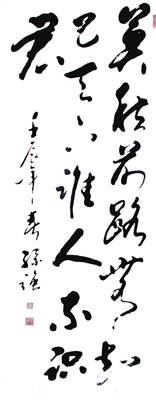 莫愁前路無知
己天下誰人不識
君
壬辰年春